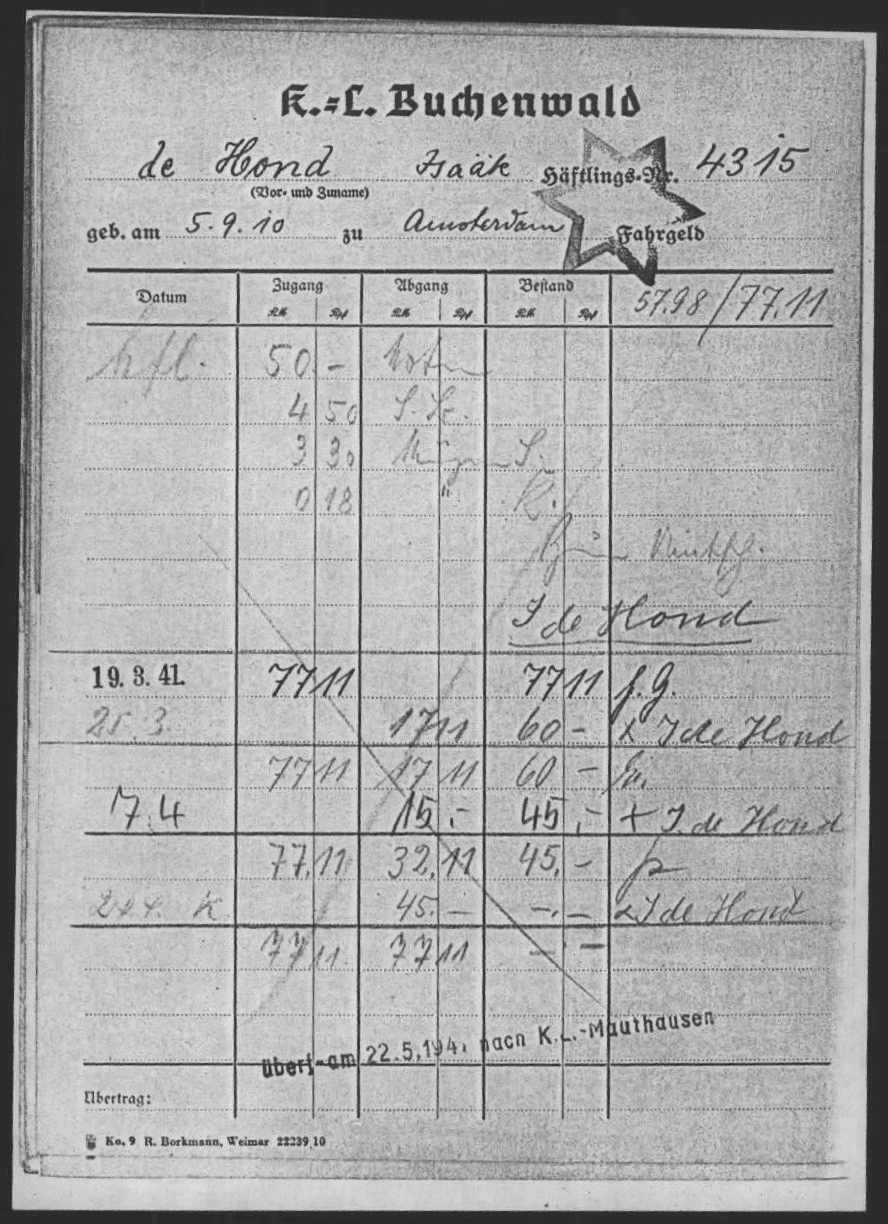 K.=L. Buchenwald
de Hond Isaäk Häftlings-Nr. 4315
(Vor- und Zuname)
geb. am 5.9.10 zu Amsterdam Fahrgeld
Datum Zugang Abgang Bestand 57.98/77.11
RM Rpf RM Rpf RM Rpf
hfl. 50 -
4 50
3 30
0 18 "
I de Hond
19. 3. 41. 77 11 77 11
25.3. 17 11 60 - x I de Hond
77 11 17 11 60 -
7.4 15.- 45.- + I. de Hond
77.11 32.11 45.-
K. 45.- -.- x I de Hond
77 11 77 11 - -
überf-am 22.5.194 nach K.L.-Mauthausen
Übertrag:
Ko. 9 R. Borkmann, Weimar 22239 10